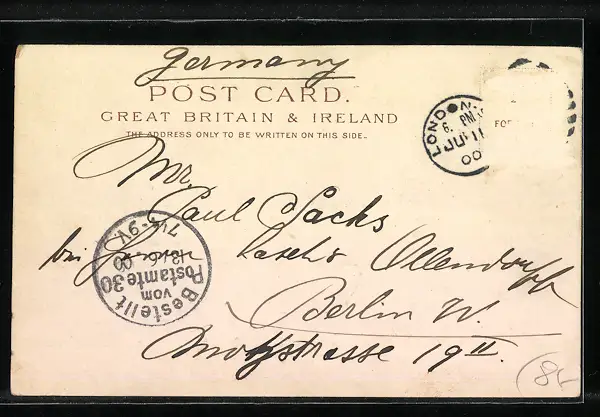 Germany
POST CARD.
GREAT BRITAIN & IRELAND
THE ADDRESS ONLY TO BE WRITTEN ON THIS SIDE.
LONDON.
6. PM
JU 11
00
FOR
Mr.
Paul Sachs
bei Ollendorff
Berlin W.
Motzstrasse 19 II.
Bestellt
vom
Postamte 30
13/6 00
7¼-9V.